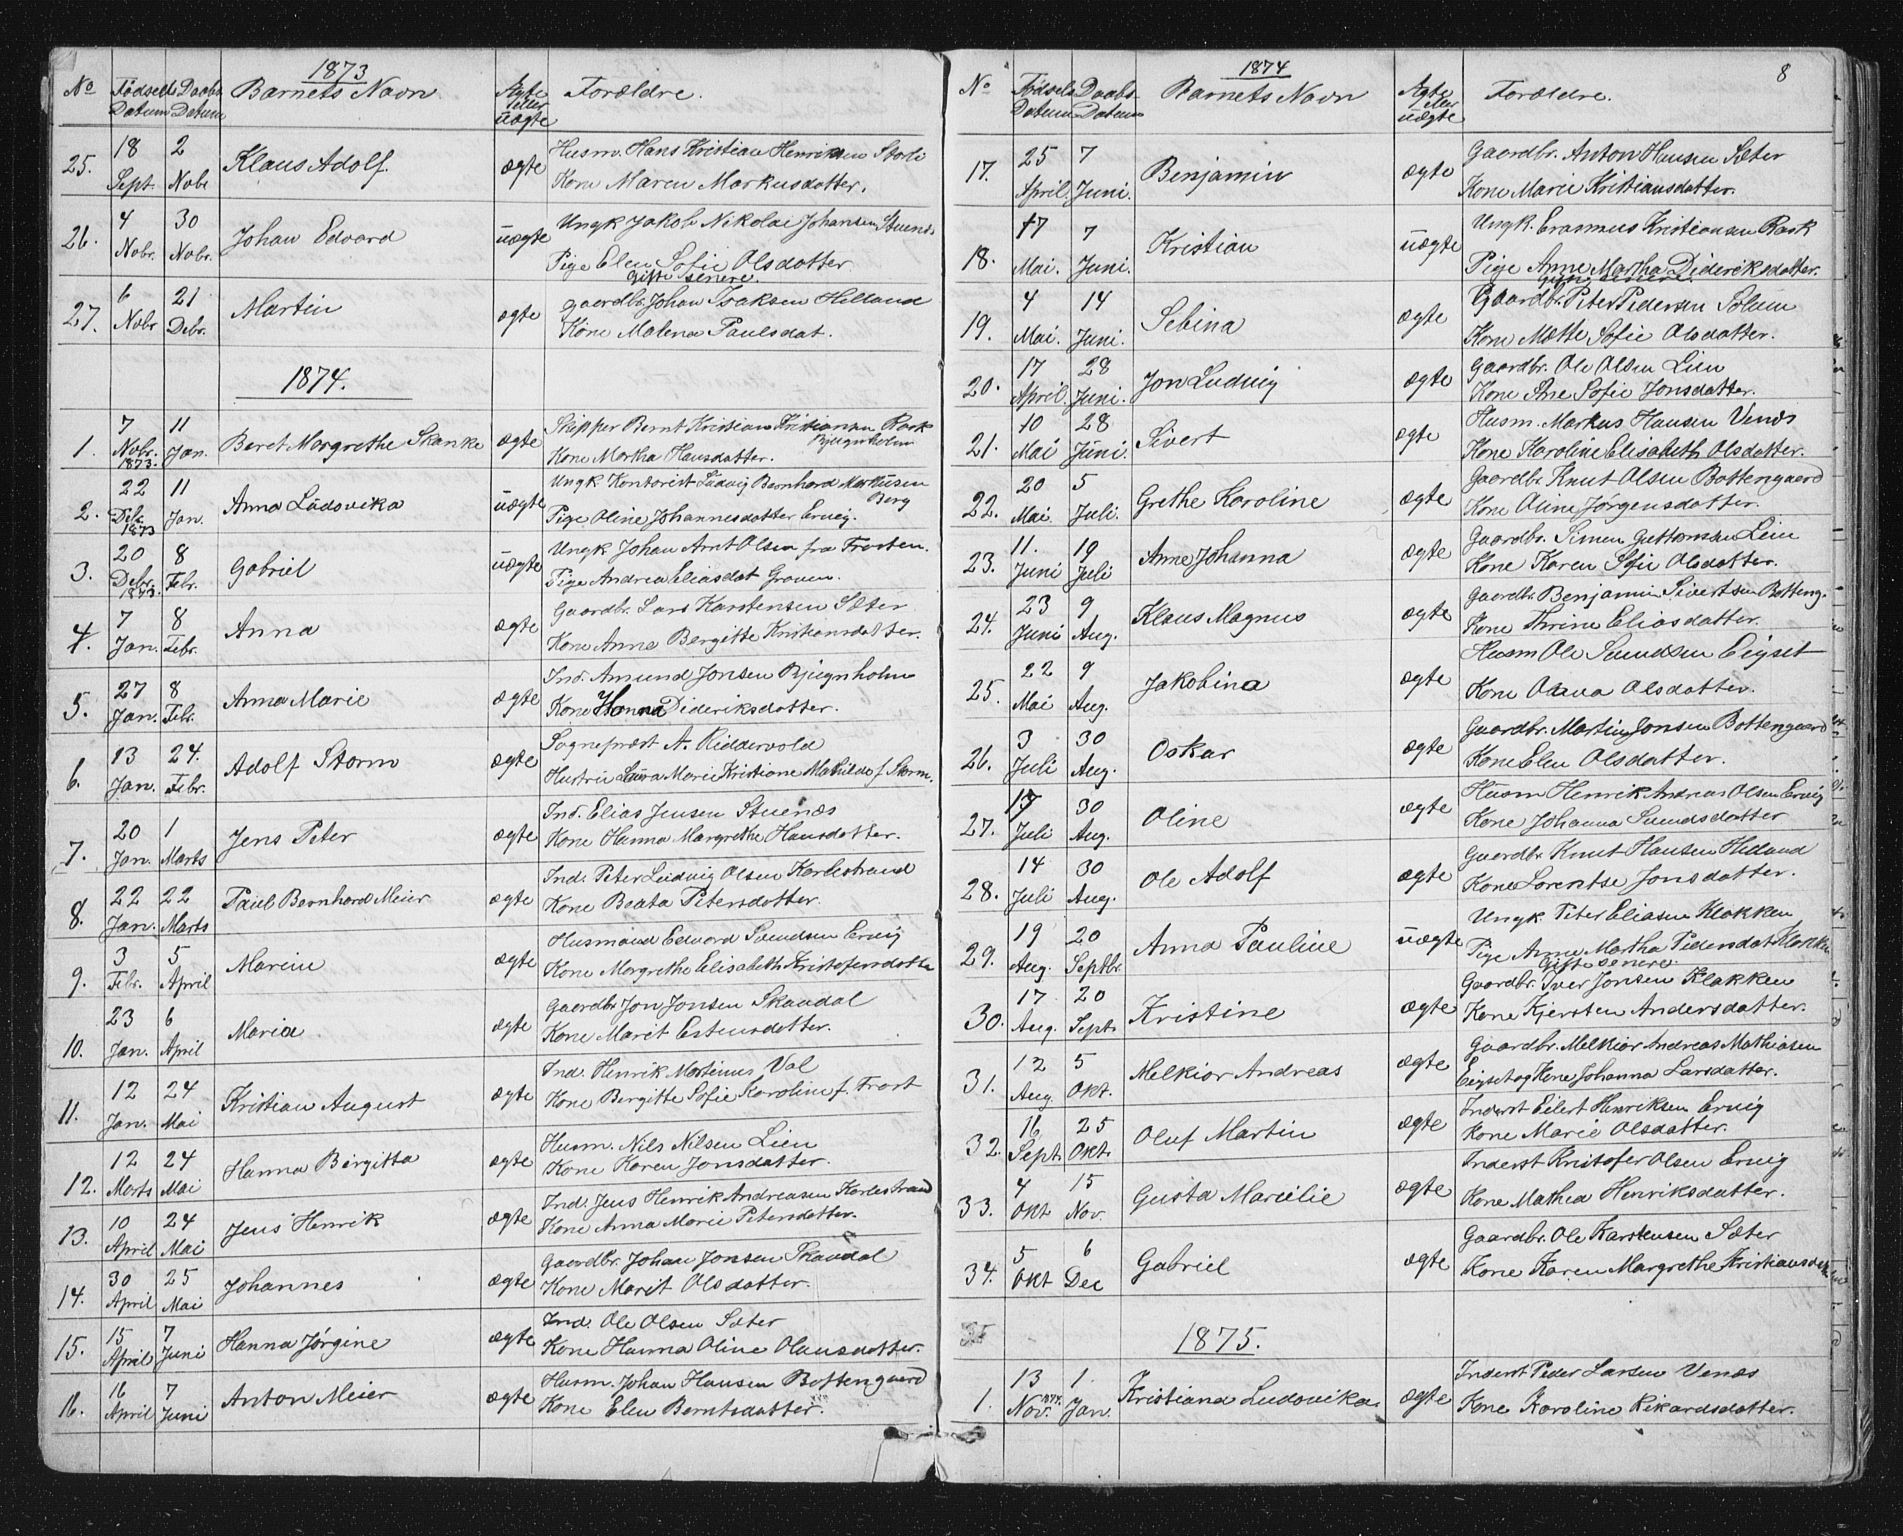 1873
No Fødsels Daabs Barnets Navn. Ægte Forældre.
Datum Datum eller
uægte
25. 18 Sept. 2 Nobr Klaus Adolf. ægte Husm. Hans Kristian Henriksen Storli
Kone Maren Markusdatter.
26. 4 Nobr. 30 Nobr. Johan Edvard uægte Ungk Jakob Nikolai Johansen Stuenæs
Pige Elen Sofie Olsdatter
gifte senere.
27. 6 Nobr 21 Debr. Martin ægte Gaardbr. Johan Isaksen Helland
Kone Malena Paulsdat.
1874.
1. 7 Nobr. 1873. 11 Jan. Beret Margrethe Skanke ægte Skipper Bernt Kristian Kristiansen Rask
Bjugnholm
Kone Martha Hansdatter.
2. 22 Debr. 1873 11 Jan. Anna Ludovika uægte Ungk Kontorist Ludvig Bernhard Markusen
Berg
Pige Oline Johannesdatter Ervig.
3. 20 Debr. 1873. 8 Febr. Gabriel uægte Ungk Johan Arnt Olsen fra Frosten.
Pige Andrea Eliasdat Graven.
4. 7 Jan. 8 Febr. Anna ægte Gaardbr. Lars Karstensen Sæter
Kone Anna Bergitte Kristiansdatter.
5. 27 Jan. 8 Febr. Anna Marie ægte Ind. Amund Jonsen Bjugnholm
Kone Hanna Dideriksdatter.
6. 13 Jan. 24. Febr. Adolf Storm ægte Sognepræst A. Riddervold
Hustru Laura Marie Kristiane Mathilde f. Storm.
7. 20 Jan. 1 Marts Jens Peter ægte Ind. Elias Jensen Stuenæs
Kone Hanna Margrethe Hansdatter.
8. 22 Jan. 22 Marts Paul Bernhard Meier ægte Ind. Peter Ludvig Olsen Karlestrand
Kone Beata Petersdatter.
9. 3 Febr. 5 April Marin ægte Husmand Edvard Svendsen Ervig
Kone Margrethe Elisabeth Kristofersdatter
10. 23 Jan. 6 April Maria ægte Gaardbr. Jon Jonsen Skavdal
Kone Marit Estensdatter.
11. 12 Jan. 24 Mai Kristian August ægte Ind. Henrik Martinus Val
Kone Bergitte Sofie Karoline f. Frost
12. 12 Marts 24 Mai Hanna Birgitta ægte Husm. Nils Nilsen Lien
Kone Karen Jonsdatter.
13. 10 April 24 Mai Jens Henrik ægte Ind. Jens Henrik Andreasen Karlestrand
Kone Anna Marie Petersdatter.
14. 30 April 25 Mai Johannes ægte Gaardbr. Johan Jonsen Skavdal
Kone Marit Olsdatter.
15. 15 April 7 Juni Hanna Jørgine ægte Ind. Ole Olsen Sæter
Kone Hanna Oline Olausdatter.
16. 16 April 7 Juni Anton Meier ægte Husm. Johan Hansen Bottengaard
Kone Elen Berntsdatter.
8
1874
No Fødsels Daabs Barnets Navn Ægte Forældre.
Datum Datum eller
uægte
17. 25 April. 7 Juni. Benjamin ægte Gaardbr. Anton Hansen Sæter
Kone Marie Kristiansdatter.
18. 17 Mai. 7 Juni. Kristian uægte Ungk. Erasmus Kristiansen Rask
Pige Anne Martha Dideriksdatter.
gifte senere.
19. 4 Mai. 14 Juni. Sebina ægte Gaardbr. Peter Pedersen Solem
Kone Mætte Sofie Olsdatter.
20. 17 April. 28 Juni. Jon Ludvig ægte Gaardbr. Ole Olsen Lien
Kone Ane Sofie Jonsdatter.
21. 10 Mai 28 Juni. Sivert ægte Husm. Markus Hansen Venæs
Kone Karoline Elisabeth Olsdatter.
22. 20 Mai. 5 Juli. Grethe Karoline ægte Gaardbr. Knut Olsen Bottengaard
Kone Oline Jørgensdatter.
23. 11. Juni 19 Juli Anne Johanna ægte Gaardbr. Simen Guttormsen Lien
Kone Karen Sofie Olsdatter.
24. 23 Juni 9 Aug. Klaus Magnus ægte Gaardbr. Benjamin Sivertsen Botteng.
Kone Thrine Eliasdatter.
25. 22 Mai 9 Aug. Jakobina ægte Husm Ole Svendsen Eigset
Kone Olava Olsdatter.
26. 3 Juli 30 Aug. Oskar ægte Gaardbr. Martin Jonsen Bottengaard
Kone Elen Olsdatter.
27. Juli 30 Aug. Oline ægte Husm Henrik Andreas Olsen Ervig
Kone Johanna Svendsdatter
28. 14 Juli 30 Aug. Ole Adolf ægte Gaardbr Knut Hansen Hidand
Kone Lorentse Jonsdatter.
29. 19 Aug. 20 Septbr. Anna Pauline uægte Ungk. Peter Eliasen Klakken
Pige Anne Martha Pedersdat Klakken
Gifte senere.
30. 17 Aug. 20 Sept. Kristine ægte Gaardbr. Iver Jonsen Klakken
Kone Kjersten Andersdatter.
31. 12 Aug. 5 Okt. Melkior Andreas ægte Gaardbr. Melkior Andreas Mathiasen
Eigset og Kone Johanna Larsdatter.
32. 16 Sept. 25 Okt. Oluf Martin ægte Inderst Eilert Henriksen Ervig
Kone Marie Olsdatter.
33. 4 Okt 15 Nov. Gusta Marielie ægte Inderst Kristofer Olsen Ervig
Kone Mathea Henriksdatter.
34. 5 Okt 6 Dec Gabriel ægte Gaardbr. Ole Karstensen Sæter
Kone Karen Margrethe Kristiansdatter
1875.
1. 13 Nov. 1874. 1. Jan. Kristiana Ludovika. ægte Inderst Peder Larsen Venæs
Kone Karoline Rikardsdatter.